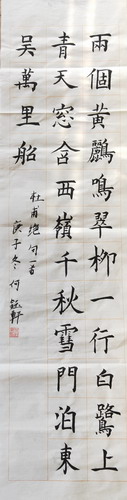 兩個黃鸝鳴翠柳一行白鷺上
青天窓含西嶺千秋雪門泊東
吴萬里船
杜甫絕句一首
庚子冬何鈺軒